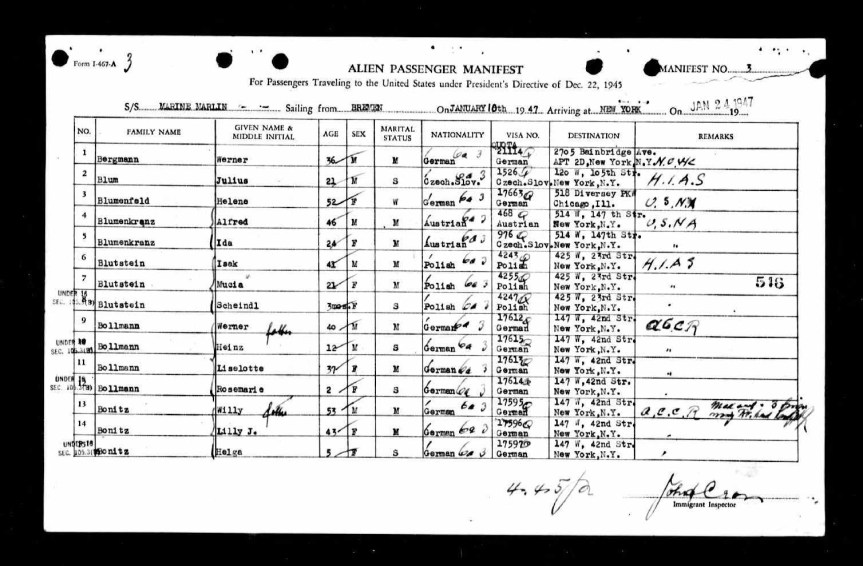 Form I-467-A 3
ALIEN PASSENGER MANIFEST
MANIFEST NO. 3
For Passengers Traveling to the United States under President's Directive of Dec. 22, 1945
S/S MARINE MARLIN Sailing from BREMEN On JANUARY 10th 1947 Arriving at NEW YORK On JAN 24 1947 19
NO. FAMILY NAME GIVEN NAME & MIDDLE INITIAL AGE SEX MARITAL STATUS NATIONALITY VISA NO. DESTINATION REMARKS
QUOTA
1 Bergmann Werner 36 M M German 21114 German 2705 Bainbridge Ave. APT 2D, New York, N.Y.
2 Blum Julius 21 M S Czech.Slov. 1526 Czech.Slov. 120 W, 105th Str. New York,N.Y. H.I.A.S
3 Blumenfeld Helene 52 F W German 17663 German 518 Diversey PKW Chicago,Ill.
4 Blumenkranz Alfred 46 M M Austrian 468 Austrian 514 W, 147 th Str. New York,N.Y. U.S.N.A
5 Blumenkranz Ida 24 F M Austrian 976 Czech.Slov. 514 W, 147th Str. New York,N.Y. "
6 Blutstein Isak 41 M M Polish 4243 Polish 425 W, 23rd Str. New York,N.Y. H.I.A.S
7 Blutstein Mucia 21 F M Polish 4255 Polish 425 W, 23rd Str. New York,N.Y. " 516
UNDER 16 SEC.
8 Blutstein Scheindl 3mos. F S Polish 4247 Polish 425 W, 23rd Str. New York,N.Y.
9 Bollmann Werner 40 M M German 17612 German 147 W, 42nd Str. New York,N.Y.
UNDER SEC.
Bollmann Heinz 12 M S German 17615 German 147 W, 42nd Str. New York,N.Y. "
11 Bollmann Liselotte 37 F M German 17613 German 147 W, 42nd Str. New York,N.Y. "
UNDER SEC.
Bollmann Rosemarie 2 F S German 17614 German 147 W,42nd Str. New York,N.Y.
13 Bonitz Willy 53 M M German 17595 German 147 W, 42nd Str. New York,N.Y. A.C.C.R
14 Bonitz Lilly J. 43 F M German 17596 German 147 W, 42nd Str. New York,N.Y.
UNDER 16 SEC.
Bonitz Helga 5 F S German 17597 German 147 W, 42nd Str. New York,N.Y.
Immigrant Inspector